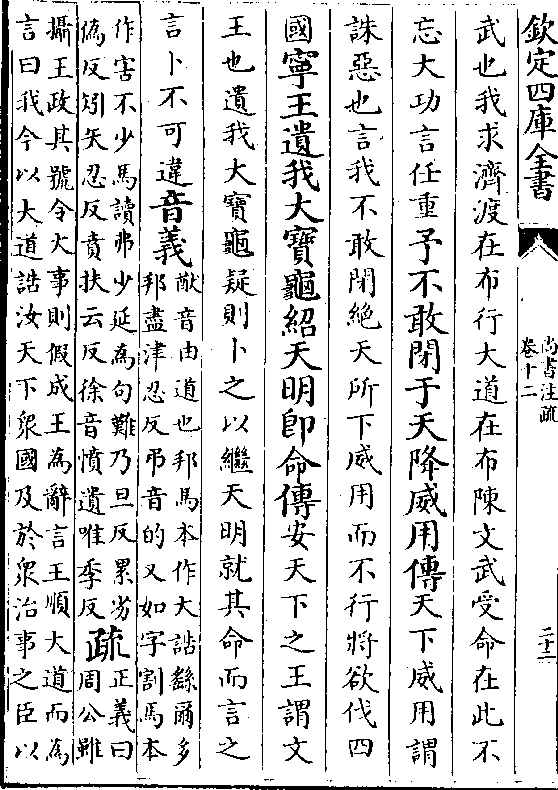 欽定四庫全書
尚書注疏
卷十二
二十二
武也我求濟渡在布行大道在布陳文武受命在此不
忘大功言任重予不敢閉于天降威用傳天下威用謂
誅惡也言我不敢閉絶天所下威用而不行將欲伐四
國寧王遺我大寶龜紹天明即命傳安天下之王謂文
王也遺我大寶龜疑則卜之以繼天明就其命而言之
言卜不可違音義猷音由道也邦馬本作大誥繇爾多
邦盡津忍反弔音的又如字割馬本
作害不少馬讀弗少延為句難乃旦反累劣
偽反矧矢忍反賁扶云反徐音憤遺唯季反疏正義曰
周公雖
攝王政其號令大事則假成王為辭言王順大道而為
言曰我今以大道誥汝天下衆國及於衆治事之臣以